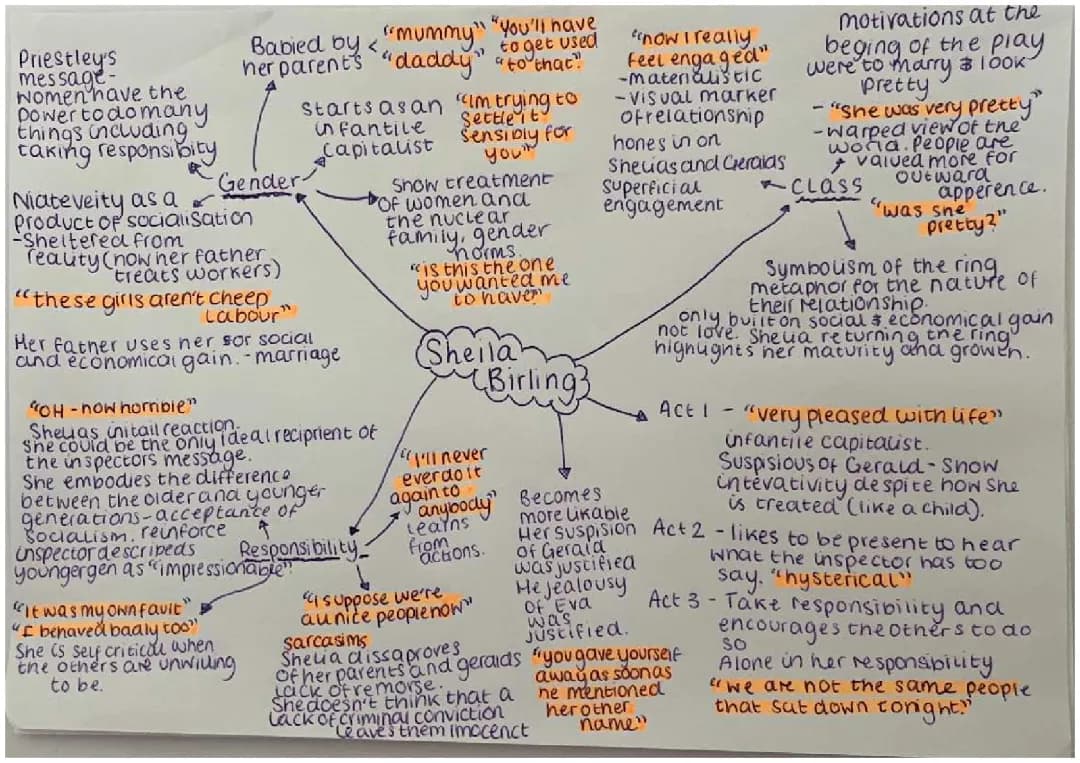 Sheila
Birling
Gender
Babied by
her parents
"mummy"
"daddy"
"You'll have
to get used
"to that"
Priestley's
message-
women have the
power to do many
things including
taking responsibity
Starts as an
infantile
capitalist
"Im trying to
settle it
sensibly for
you"
Niateveity as a
product of socialisation
-Sheltered from
reality (how her father
treats workers)
"these girls aren't cheep
labour"
Her father uses her for social
and economical gain. - marriage
Show treatment
of women and
the nuclear
family, gender
norms.
"is this the one
you wanted me
to have?"
CLASS
"now I really
feel engaged"
-materialistic
-visual marker
of relationship
hones in on
Shelias and Geralds
superficial
engagement
motivations at the
beging of the play
were to marry & look
pretty
- "She was very pretty"
-warped view of the
world. People are
valued more for
outward
apperence.
"was she
pretty?"
Symbolism of the ring
metaphor for the nature of
their relationship.
only built on social & economical gain
not love. Shelia returning the ring
highlights her maturity and growth.
Responsibility
"OH - how horrible"
Shelias initail reaction.
She could be the only ideal reciprient of
the inspectors message.
She embodies the difference
between the older and younger
generations - acceptance of
socialism. reinforce
inspector describeds
younger gen as "impressionable"
"I'll never
ever do it
again to
anybody"
Learns
from
actions.
"It was my own fault"
"I behaved badly too"
She is self critical when
the others are unwilling
to be.
"I suppose we're
all nice people now"
sarcasims
Shelia dissaproves
of her parents and geralds
lack of remorse.
She doesn't think that a
lack of criminal conviction
leaves them imocenct
Becomes
more likable
Her suspision
of Gerald
was justified
He jealousy
of Eva
was
justified.
"you gave yourself
away as soon as
he mentioned
her other
name"
Act 1 - "very pleased with life"
infantile capitalist.
Suspisious of Gerald - Show
intevativity despite how she
is treated (like a child).
Act 2 - likes to be present to hear
what the inspector has too
say. "hysterical"
Act 3 - Take responsibility and
encourages the others to do
so
Alone in her responsibility
"We are not the same people
that sat down tonight."